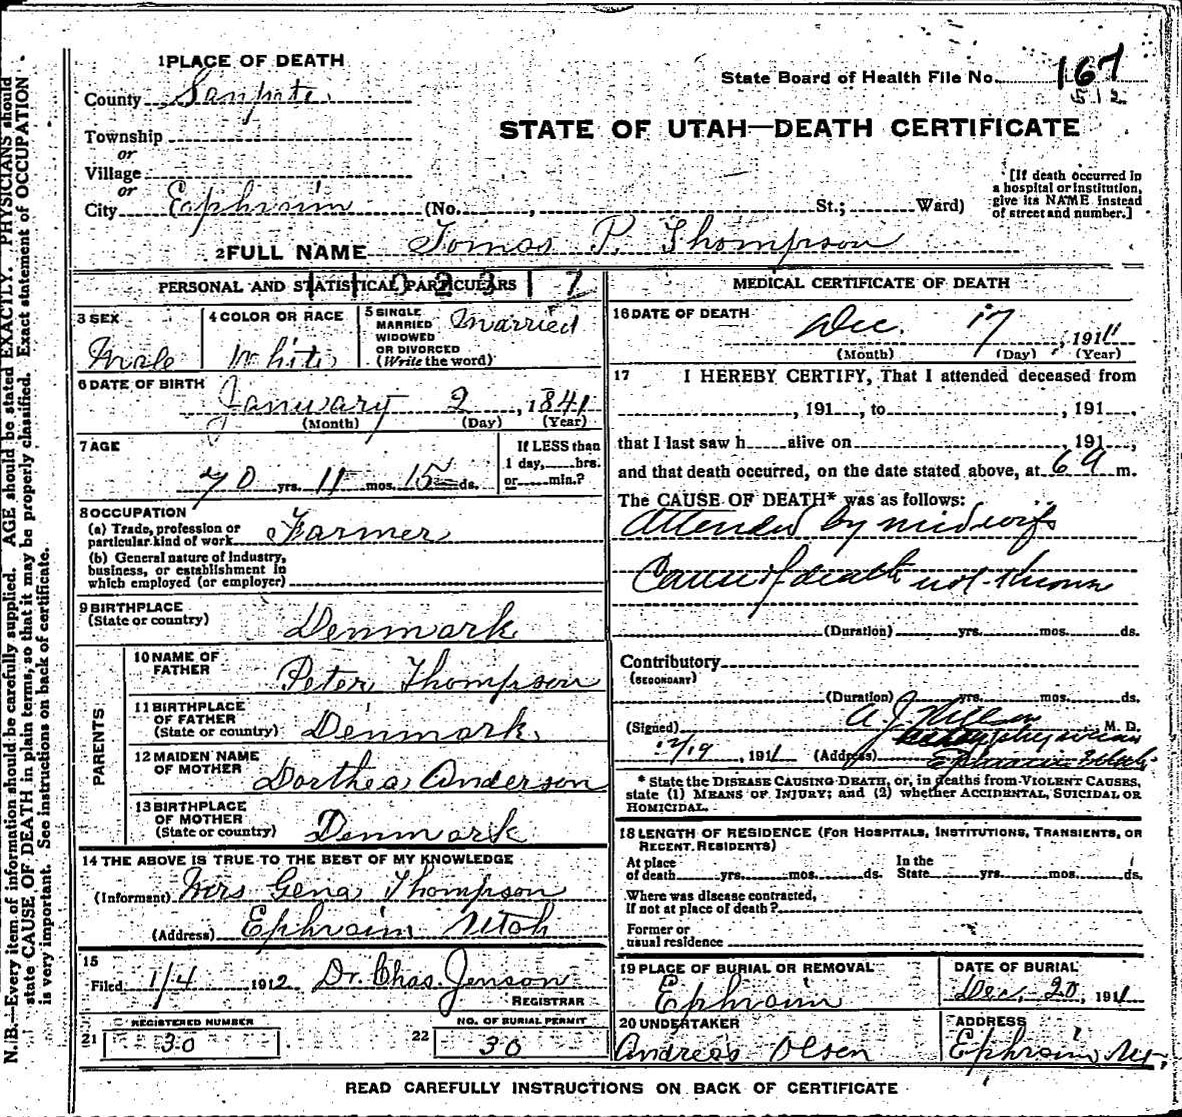 1 PLACE OF DEATH
County Sanpete
Township
or
Village
or
City Ephraim (No. , St.; Ward)
State Board of Health File No. 167
STATE OF UTAH—DEATH CERTIFICATE
[If death occurred in
a hospital or institution,
give its NAME instead
of street and number.]
2 FULL NAME Tomas P. Thompson
PERSONAL AND STATISTICAL PARTICULARS
3 SEX
Male
4 COLOR OR RACE
White
5 SINGLE
MARRIED
WIDOWED
OR DIVORCED
(Write the word)
Married
6 DATE OF BIRTH
January 2, 1841
(Month) (Day) (Year)
7 AGE
70 yrs. 11 mos. 15 ds.
If LESS than
1 day, hrs.
or min.?
8 OCCUPATION
(a) Trade, profession or
particular kind of work Farmer
(b) General nature of industry,
business, or establishment in
which employed (or employer)
9 BIRTHPLACE
(State or country)
Denmark
PARENTS
10 NAME OF
FATHER
Peter Thompson
11 BIRTHPLACE
OF FATHER
(State or country)
Denmark
12 MAIDEN NAME
OF MOTHER
Dorthea Anderson
13 BIRTHPLACE
OF MOTHER
(State or country)
Denmark
14 THE ABOVE IS TRUE TO THE BEST OF MY KNOWLEDGE
(Informant) Mrs Gena Thompson
(Address) Ephraim Utah
15
Filed 1/4 1912 Dr. Chas. Jenson
REGISTRAR
21 REGISTERED NUMBER
30
22 NO. OF BURIAL PERMIT
30
MEDICAL CERTIFICATE OF DEATH
16 DATE OF DEATH
Dec. 17, 1911
(Month) (Day) (Year)
17 I HEREBY CERTIFY, That I attended deceased from
, 191 , to , 191 ,
that I last saw h alive on , 191 ,
and that death occurred, on the date stated above, at 6 a m.
The CAUSE OF DEATH* was as follows:
Attended by midwife
Cause of death not known
(Duration) yrs. mos. ds.
Contributory
(SECONDARY)
(Duration) yrs. mos. ds.
(Signed) A. J. M. D.
12/19, 1911 (Address) Ephraim Utah
* State the DISEASE CAUSING DEATH, or, in deaths from VIOLENT CAUSES,
state (1) MEANS OF INJURY; and (2) whether ACCIDENTAL, SUICIDAL OR
HOMICIDAL.
18 LENGTH OF RESIDENCE (FOR HOSPITALS, INSTITUTIONS, TRANSIENTS, OR
RECENT RESIDENTS)
At place
of death yrs. mos. ds.
In the
State yrs. mos. ds.
Where was disease contracted,
if not at place of death?
Former or
usual residence
19 PLACE OF BURIAL OR REMOVAL
Ephraim
DATE OF BURIAL
Dec. 20, 1911
20 UNDERTAKER
Andreas Olsen
ADDRESS
Ephraim Ut,
READ CAREFULLY INSTRUCTIONS ON BACK OF CERTIFICATE
N. B.—Every item of information should be carefully supplied. AGE should be stated EXACTLY. PHYSICIANS should
state CAUSE OF DEATH in plain terms, so that it may be properly classified. Exact statement of OCCUPATION
is very important. See instructions on back of certificate.